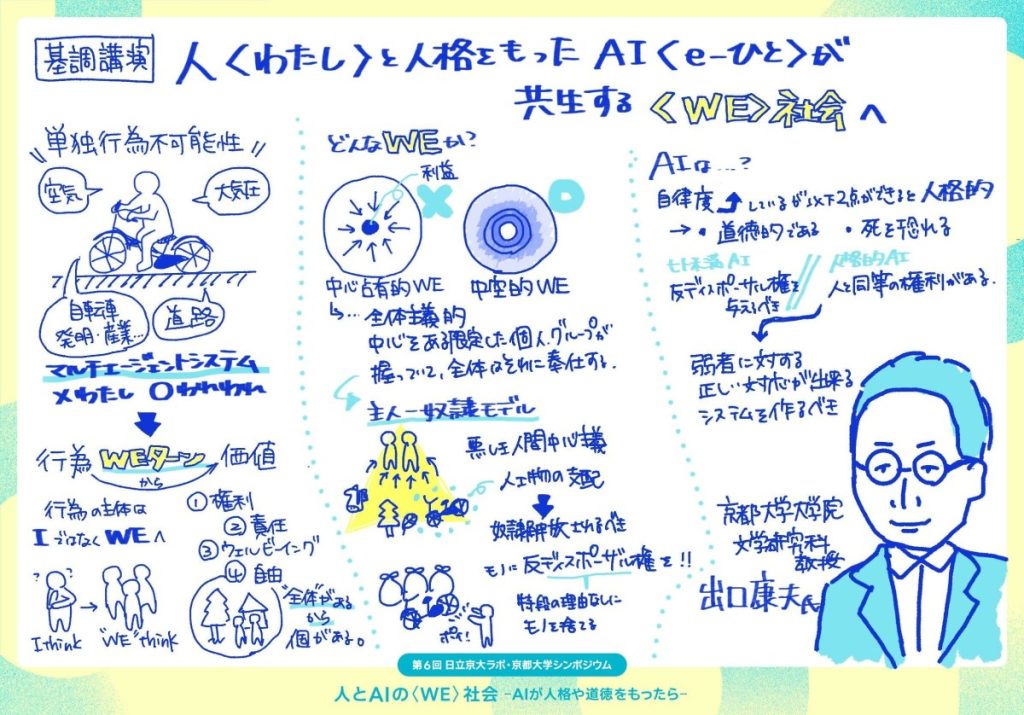 基調講演
人〈わたし〉と人格をもったAI〈e-ひと〉が
共生する〈WE〉社会へ
単独行為不可能性
空気
大気圧
自転車
発明・産業…
道路
マルチエージェントシステム
×わたし ○われわれ
行為 WEターン 価値
から
行為の主体は
IではなくWEへ
I think
"WE" think
① 権利
② 責任
③ ウェルビーイング
④ 自由
"全体"がある
から
個がある。
どんなWEか?
利益
中心占有的WE
中空的WE
…全体主義的
中心をある限定した個人、グループが
握っていて、全体はそれに奉仕する。
主人-奴隷モデル
悪しき人間中心主義
人工物の支配
奴隷解放されるべき
モノに反ディスポーザル権を!!
特段の理由なしに
モノを捨てる
ポイ!
AIは…?
自律度 しているが以下2点ができると人格的
→・道徳的である ・死を恐れる
ヒト未満AI
反ディスポーサル権を
与えるべき
人格的AI
人と同等の権利がある.
弱者に対する
正しい対応が出来る
システムを作るべき
京都大学大学院
文学研究科
教授
出口康夫氏
第6回 日立京大ラボ・京都大学シンポジウム
人とAIの〈WE〉社会 -AIが人格や道徳をもったら-